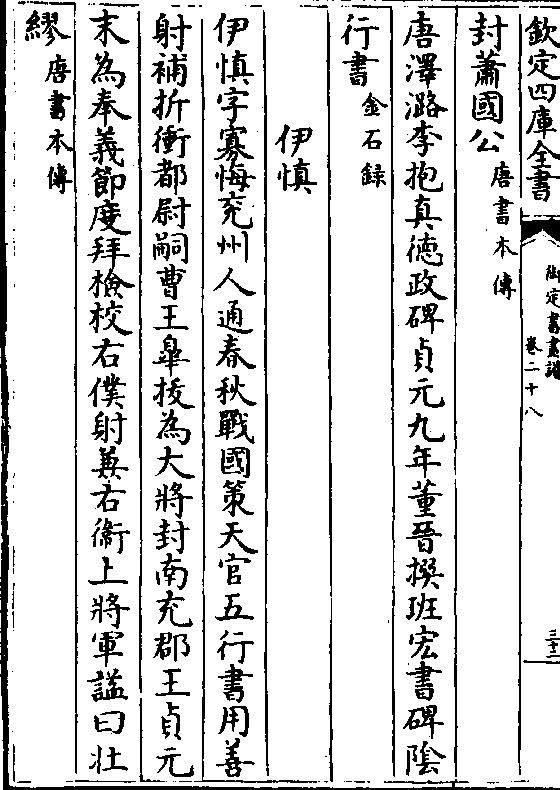 欽定四庫全書
御定書畫譜
卷二十八
三十二
封蕭國公唐書本傳
唐澤潞李抱真德政碑貞元九年董晉撰班宏書碑陰
行書金石録
伊慎
伊慎字寡悔兗州人通春秋戰國策天官五行書用善
射補折衝都尉嗣曹王臯拔為大將封南充郡王貞元
末為奉義節度拜檢校右僕射兼右衞上將軍諡曰壯
繆唐書本傳